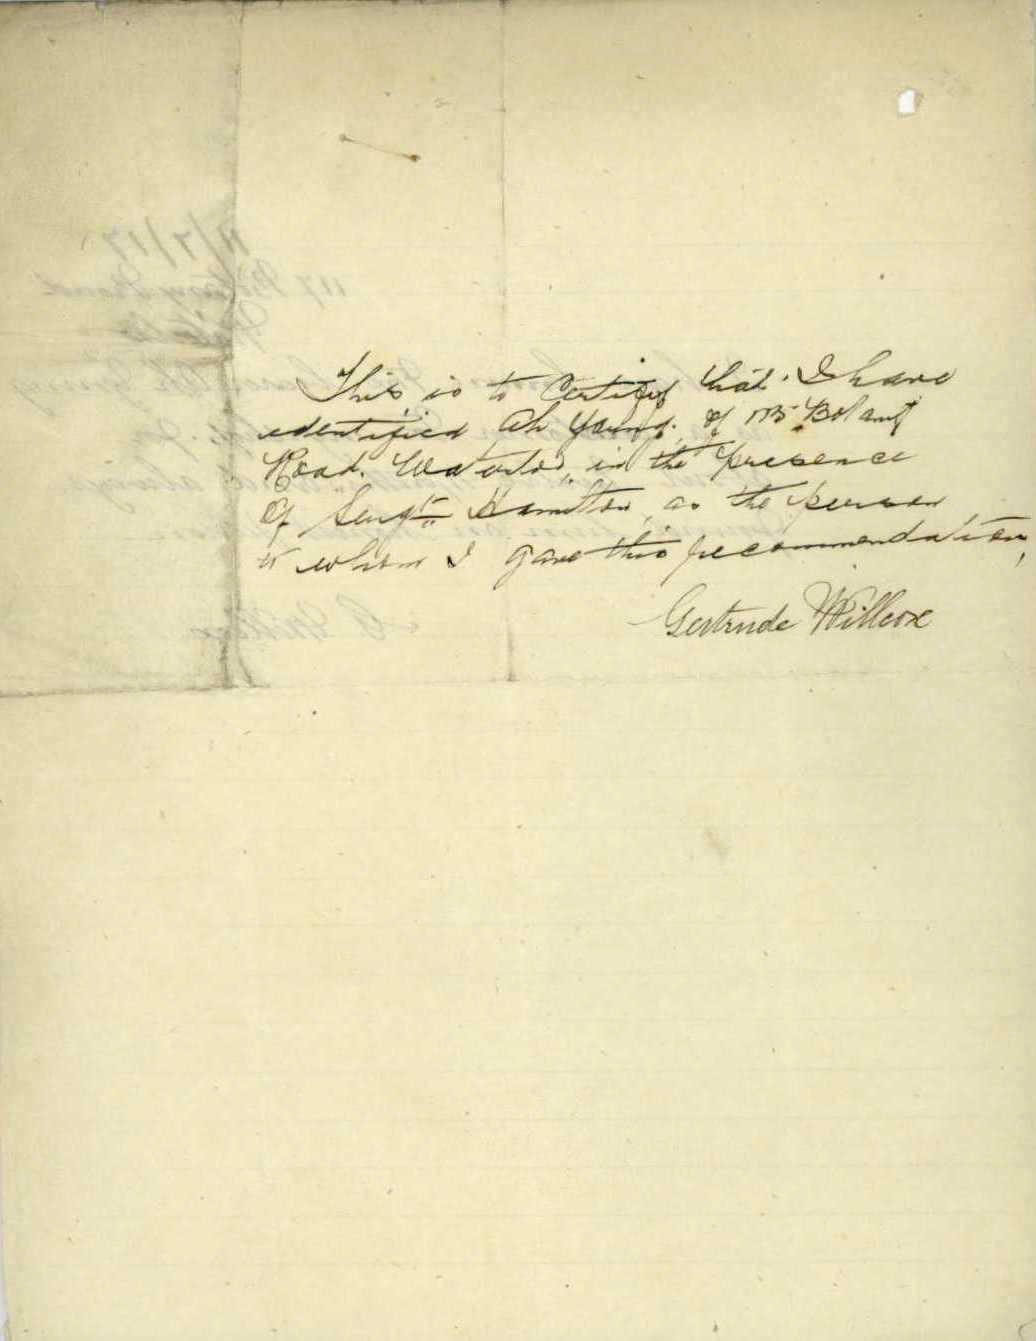 This is to Certify that I have
identified Ah Young. of 115 Botany
Road. Waterloo, in the presence
of Sergt Hamilton, as the person
to whom I gave this recommendation,
Gertrude Willcox